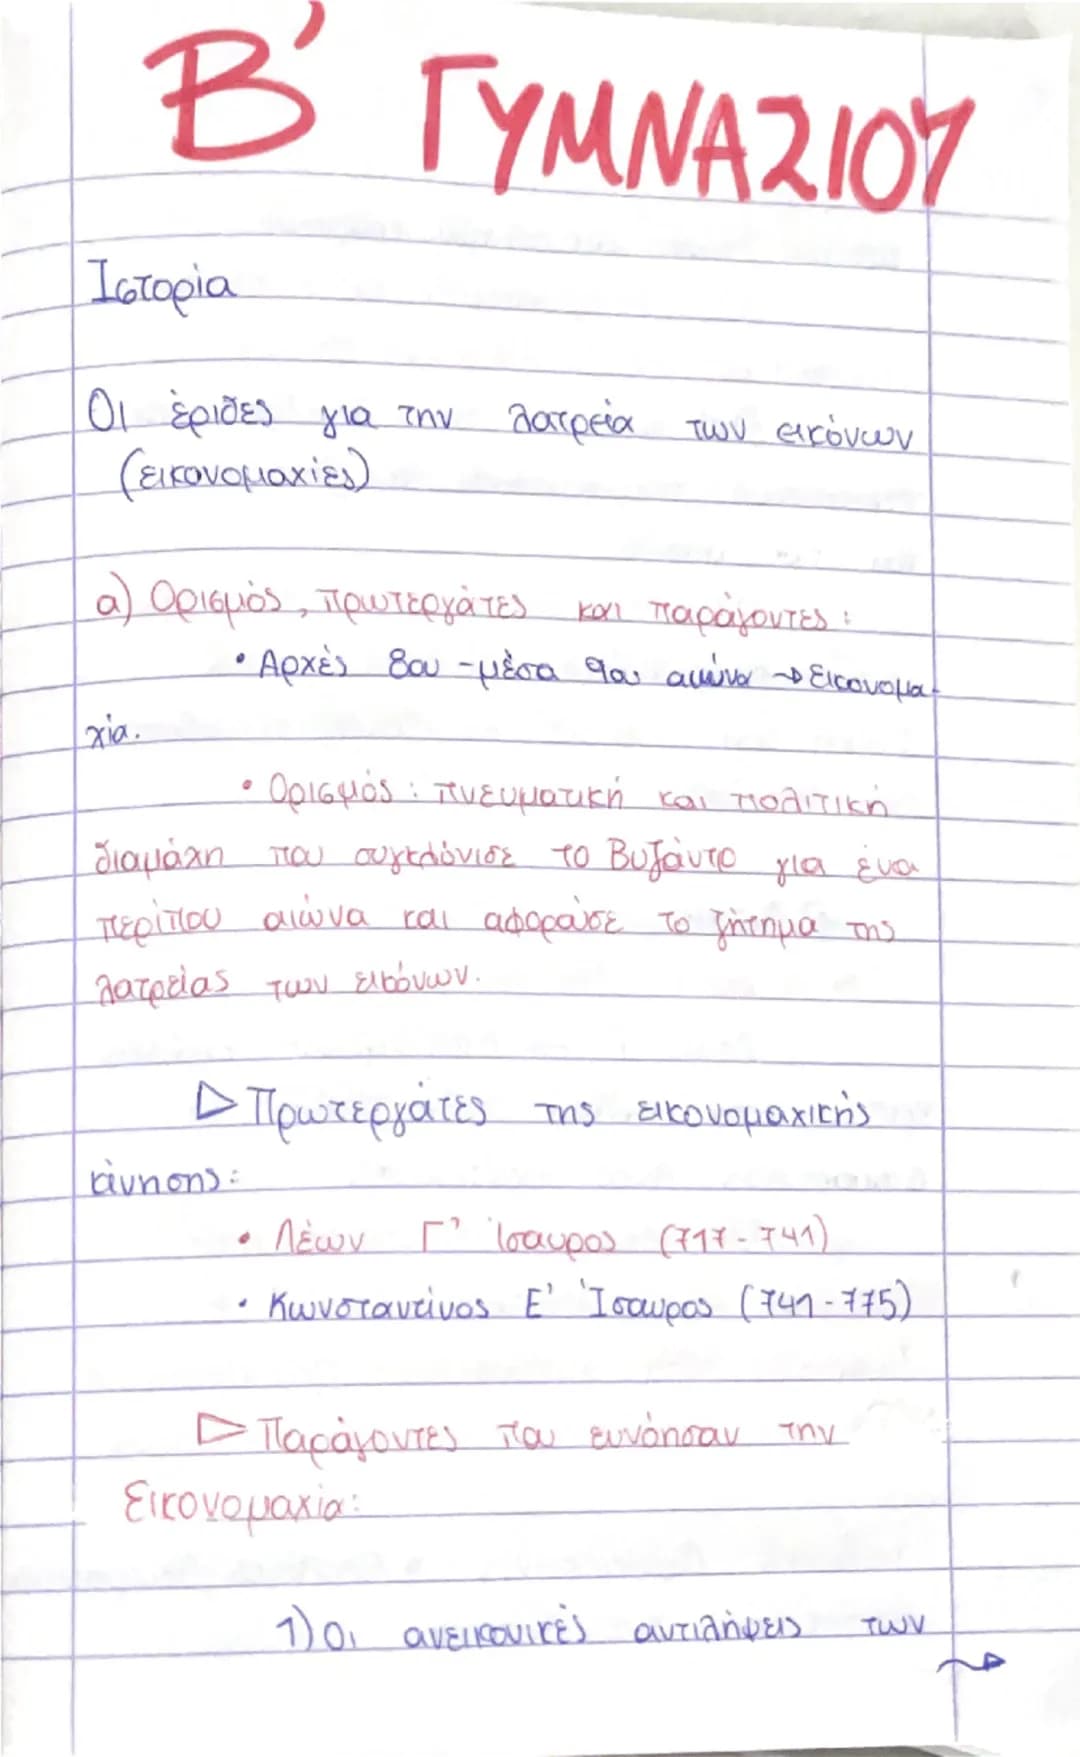 Β' ΓΥΜΝΑΣΙΟΥ
Ιστορία
Οι έριδες για την λατρεία των εικόνων
(εικονομαχίες)
α) Ορισμός, πρωτεργάτες και παράγοντες:
• Αρχές 8ου - μέσα 9ου αιώνα → Εικονομα-
χία.
• Ορισμός: πνευματική και πολιτική
διαμάχη που συγκλόνισε το Βυζάντιο για ένα
περίπου αιώνα και αφορούσε το ζήτημα της
λατρείας των εικόνων.
▷ Πρωτεργάτες της εικονομαχικής
κίνησης:
• Λέων Γ' Ίσαυρος (717-741)
• Κωνσταντίνος Ε' Ίσαυρος (741-775)
▷ Παράγοντες που ευνόησαν την
Εικονομαχία:
1) Οι ανεικονικές αντιλήψεις των